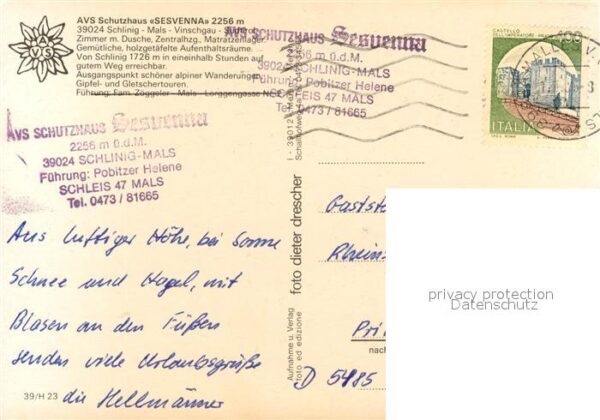 AVS Schutzhaus «SESVENNA» 2256 m
39024 Schlinig - Mals - Vinschgau -
Zimmer m. Dusche, Zentralhzg., Matratzenlager.
Gemütliche, holzgetäfelte Aufenthaltsräume.
Von Schlinig 1726 m in eineinhalb Stunden auf
gutem Weg erreichbar.
Ausgangspunkt schöner alpiner Wanderungen
Gipfel- und Gletschertouren.
Führung: Fam. Zöggeler - Mals - Lorggengasse
AVS
AVS SCHUTZHAUS Sesvenna
2256 m ü.d.M.
39024 SCHLINIG-MALS
Führung: Pobitzer Helene
SCHLEIS 47 MALS
Tel. 0473 / 81665
AVS SCHUTZHAUS Sesvenna
2256 m ü.d.M.
39024 SCHLINIG-MALS
Führung: Pobitzer Helene
SCHLEIS 47 MALS
Tel. 0473 / 81665
CASTELLO
ITALIA
Aus luftiger Höhe, bei Sonne
Schnee und Hagel, mit
Blasen an den Füßen
senden viele Urlaubsgrüße
die Hellmänner
39/H 23
Aufnahme u. Verlag
foto ed edizione
foto dieter drescher
I - 39012
Gastst
Rhein-
Pri
nach
D 5485
privacy protection
Datenschutz